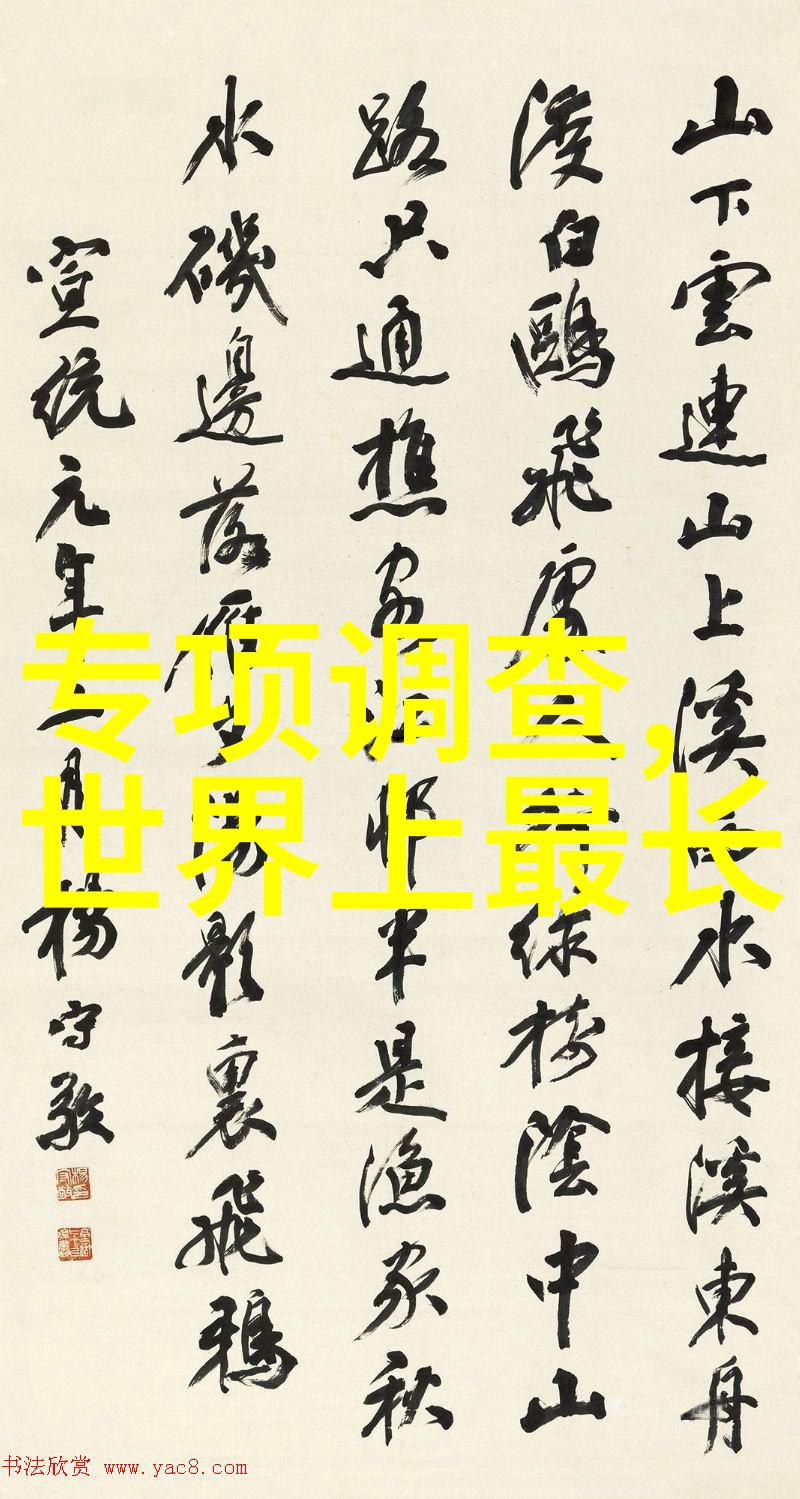 山下雲連山上溪西水接溪東舟
渡白鷗飛處人家綠樹陰中山
路只通樵客江邨半是漁家秋
水磯邊落雁夕陽影裏飛鴉
宣統元年二月楊守敬
专项调查,
世界上最长
书法欣赏 www.yac8.com